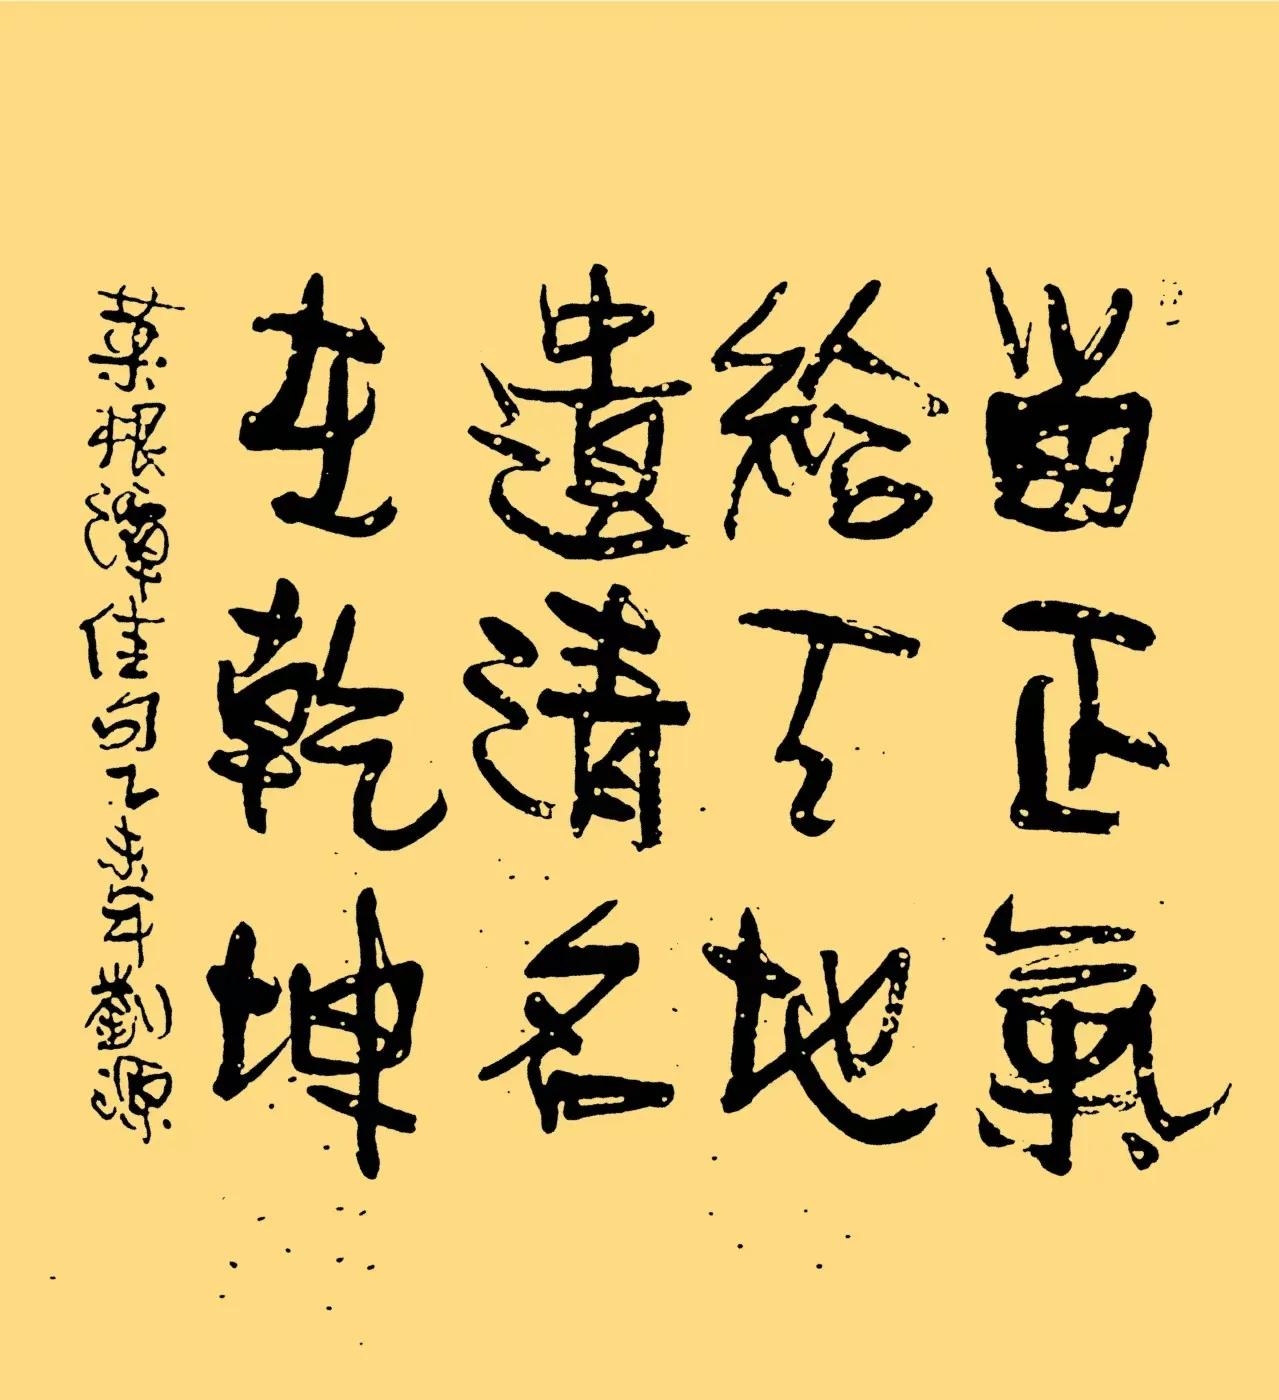 留正氣
給天地
遺清名
在乾坤
菜根潭佳句乙未年劉源